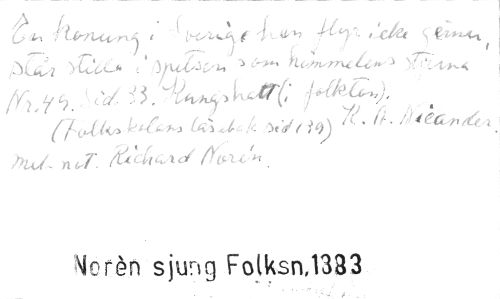 En konung i Sverige han flyr icke gärna,
står städs i spetsen som himmelens stärna
Nr. 49. Sid. 33. Kungshatt (i folkton).
(Folkskolans läsebok sid 139) K. A. Nicander.
mel. not. Richard Norén.
Norèn sjung Folksn,1383